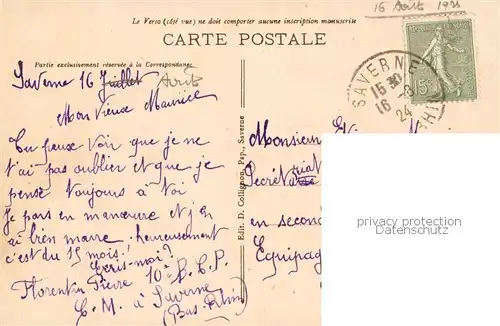 16 Août 192
Le Verso (côté vue) ne doit comporter aucune inscription manuscrite
CARTE POSTALE
Partie exclusivement réservée à la Correspondance
Saverne 16 Juillet Août
Mon Vieux Maurice
Tu peux voir que je ne
t'ai pas oublier et que je
pense toujours à toi
Je pars en manœuvre et j'en
ai bien marre, heureusement
c'est du 15 mois!
Ecris-moi?
Florentin Pierre 10e B.C.P.
C. M. à Saverne
(Bas-Rhin)
Edit. D. Collignon, Pap., Saverne
SAVERNE
15 30
16 -8
24
RHIN
15c
Monsieur
Secrétariat
en second
Equipag
Privatsphäre
Datenschutz!